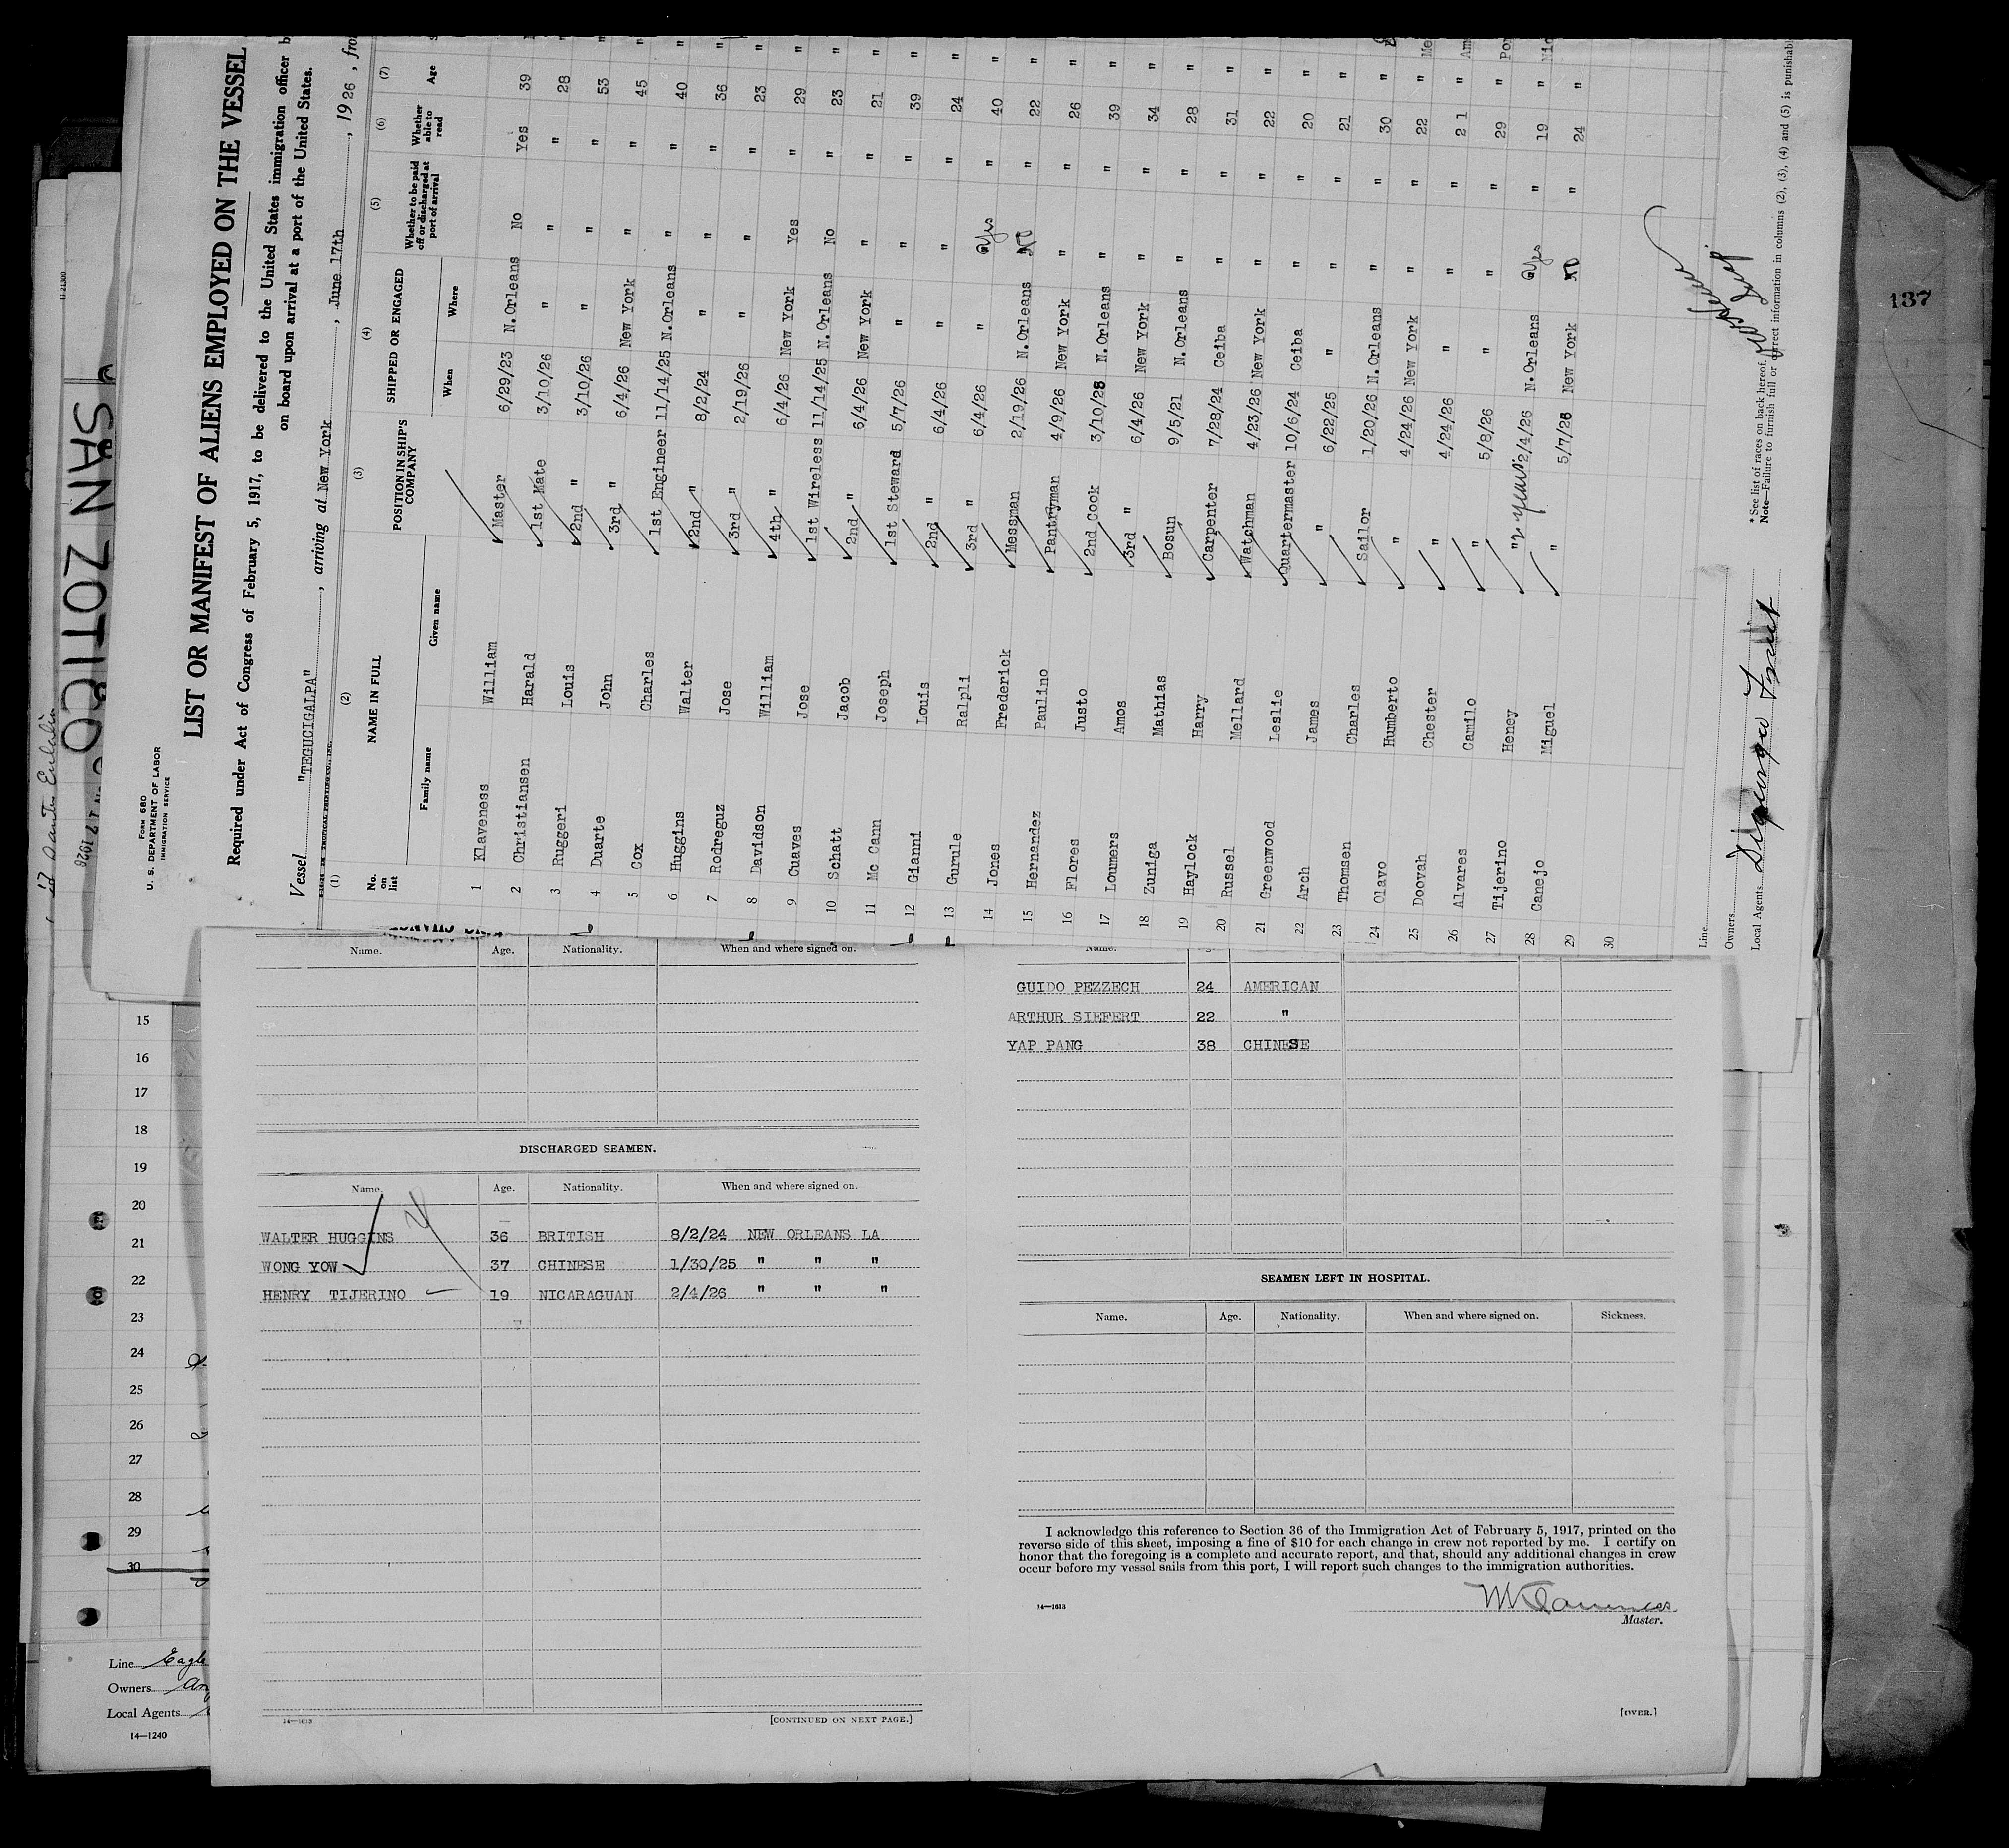 FORM 680
U. S. DEPARTMENT OF LABOR
IMMIGRATION SERVICE
LIST OR MANIFEST OF ALIENS EMPLOYED ON THE VESSEL
Required under Act of Congress of February 5, 1917, to be delivered to the United States immigration officer b
on board upon arrival at a port of the United States.
Vessel "TEGUCIGALPA", arriving at New York, June 17th, 1926, fro
(1) (2) (3) (4) (5) (6) (7)
No. on list NAME IN FULL POSITION IN SHIP'S COMPANY SHIPPED OR ENGAGED Whether to be paid off or discharged at port of arrival Whether able to read Age
Family name Given name When Where
1 Klaveness William Master 6/29/23 N.Orleans No Yes 39
2 Christiansen Harald 1st Mate 3/10/26 " " " 28 "
3 Ruggeri Louis 2nd " 3/10/26 " " " 53 "
4 Duarte John 3rd " 6/4/26 New York " " 45 "
5 Cox Charles 1st Engineer 11/14/25 N.Orleans " " 40 "
6 Huggins Walter 2nd " 8/2/24 " " " 36 "
7 Rodreguz Jose 3rd " 2/19/26 " " " 23 "
8 Davidson William 4th " 6/4/26 New York Yes " 29 "
9 Cuaves Jose 1st Wireless 11/14/25 N.Orleans No " 23 "
10 Schatt Jacob 2nd " 6/4/26 New York " " 21 "
11 Mc Cann Joseph 1st Steward 5/7/26 " " " 39 "
12 Gianni Louis 2nd " 6/4/26 " " " 24 "
13 Gurule Ralpli 3rd " 6/4/26 " Yes " 40 "
14 Jones Frederick Messman 2/19/26 N.Orleans No " 22 "
15 Hernandez Paulino Pantryman 4/9/26 New York " " 26 "
16 Flores Justo 2nd Cook 3/10/26 N.Orleans " " 39 "
17 Loumers Amos 3rd " 6/4/26 New York " " 34 "
18 Zuniga Mathias Bosun 9/5/21 N.Orleans " " 28 "
19 Haylock Harry Carpenter 7/28/24 Ceiba " " 31 "
20 Russel Mellard Watchman 4/23/26 New York " " 22 "
21 Greenwood Leslie Quartermaster 10/6/24 Ceiba " " 20 "
22 Arch James " 6/22/25 " " " 21 "
23 Thomsen Charles Sailor 1/20/26 N.Orleans " " 30 "
24 Olavo Humberto " 4/24/26 New York " " 22 "
25 Doovah Chester " 4/24/26 " " " 21 "
26 Alvares Camilo " 5/8/26 " " " 29 "
27 Tijerino Heney " 2 years 2/4/26 N.Orleans Yes " 19 "
28 Canejo Miguel " 5/7/26 New York No " 24 "
29
30
Line
Owners
Local Agents
* See list of races on back hereof.
Note—Failure to furnish full or correct information in columns (2), (3), (4) and (5) is punishabl
SAN ZOTICO
137
Name. Age. Nationality. When and where signed on.
DISCHARGED SEAMEN.
Name. Age. Nationality. When and where signed on.
WALTER HUGGINS 36 BRITISH 8/2/24 NEW ORLEANS LA
WONG YOW 37 CHINESE 1/30/25 " " "
HENRY TIJERINO 19 NICARAGUAN 2/4/26 " " "
14—1613
[CONTINUED ON NEXT PAGE.]
Name.
GUIDO PEZZECH 24 AMERICAN
ARTHUR SIEFERT 22 "
YAP PANG 38 CHINESE
SEAMEN LEFT IN HOSPITAL.
Name. Age. Nationality. When and where signed on. Sickness.
I acknowledge this reference to Section 36 of the Immigration Act of February 5, 1917, printed on the
reverse side of this sheet, imposing a fine of $10 for each change in crew not reported by me. I certify on
honor that the foregoing is a complete and accurate report, and that, should any additional changes in crew
occur before my vessel sails from this port, I will report such changes to the immigration authorities.
14—1613
Master.
[OVER.]
15
16
17
18
19
20
21
22
23
24
25
26
27
28
29
30
Line Eagle
Owners
Local Agents
14—1240